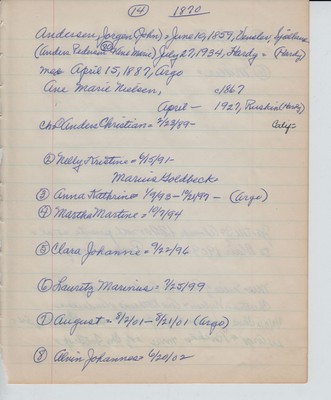 (14) 1870
Andersen, Jorgen (John) = June 10, 1859, Denslev,
(Anders Pedersen Kine Marie) July 27, 1934, Hardy = (Hardy)
mar April 15, 1887, Argo
Ane Marie Nielsen, c/1867
April — 1927, Ruskin (Hardy)
ch ① Anders Christian = 2/23/89 -
② Nelly Kristine = 6/15/91 -
Marius Goldbeck
③ Anna Kathrine = 1/7/93 - 10/21/97 - (Argo)
④ Martha Martine = 10/7/94
⑤ Clara Johanne = 9/22/96
⑥ Lauretz Marinus = 7/25/99
⑦ August = 8/2/01 - 8/21/01 (Argo)
⑧ Alvin Johannes = 6/20/02